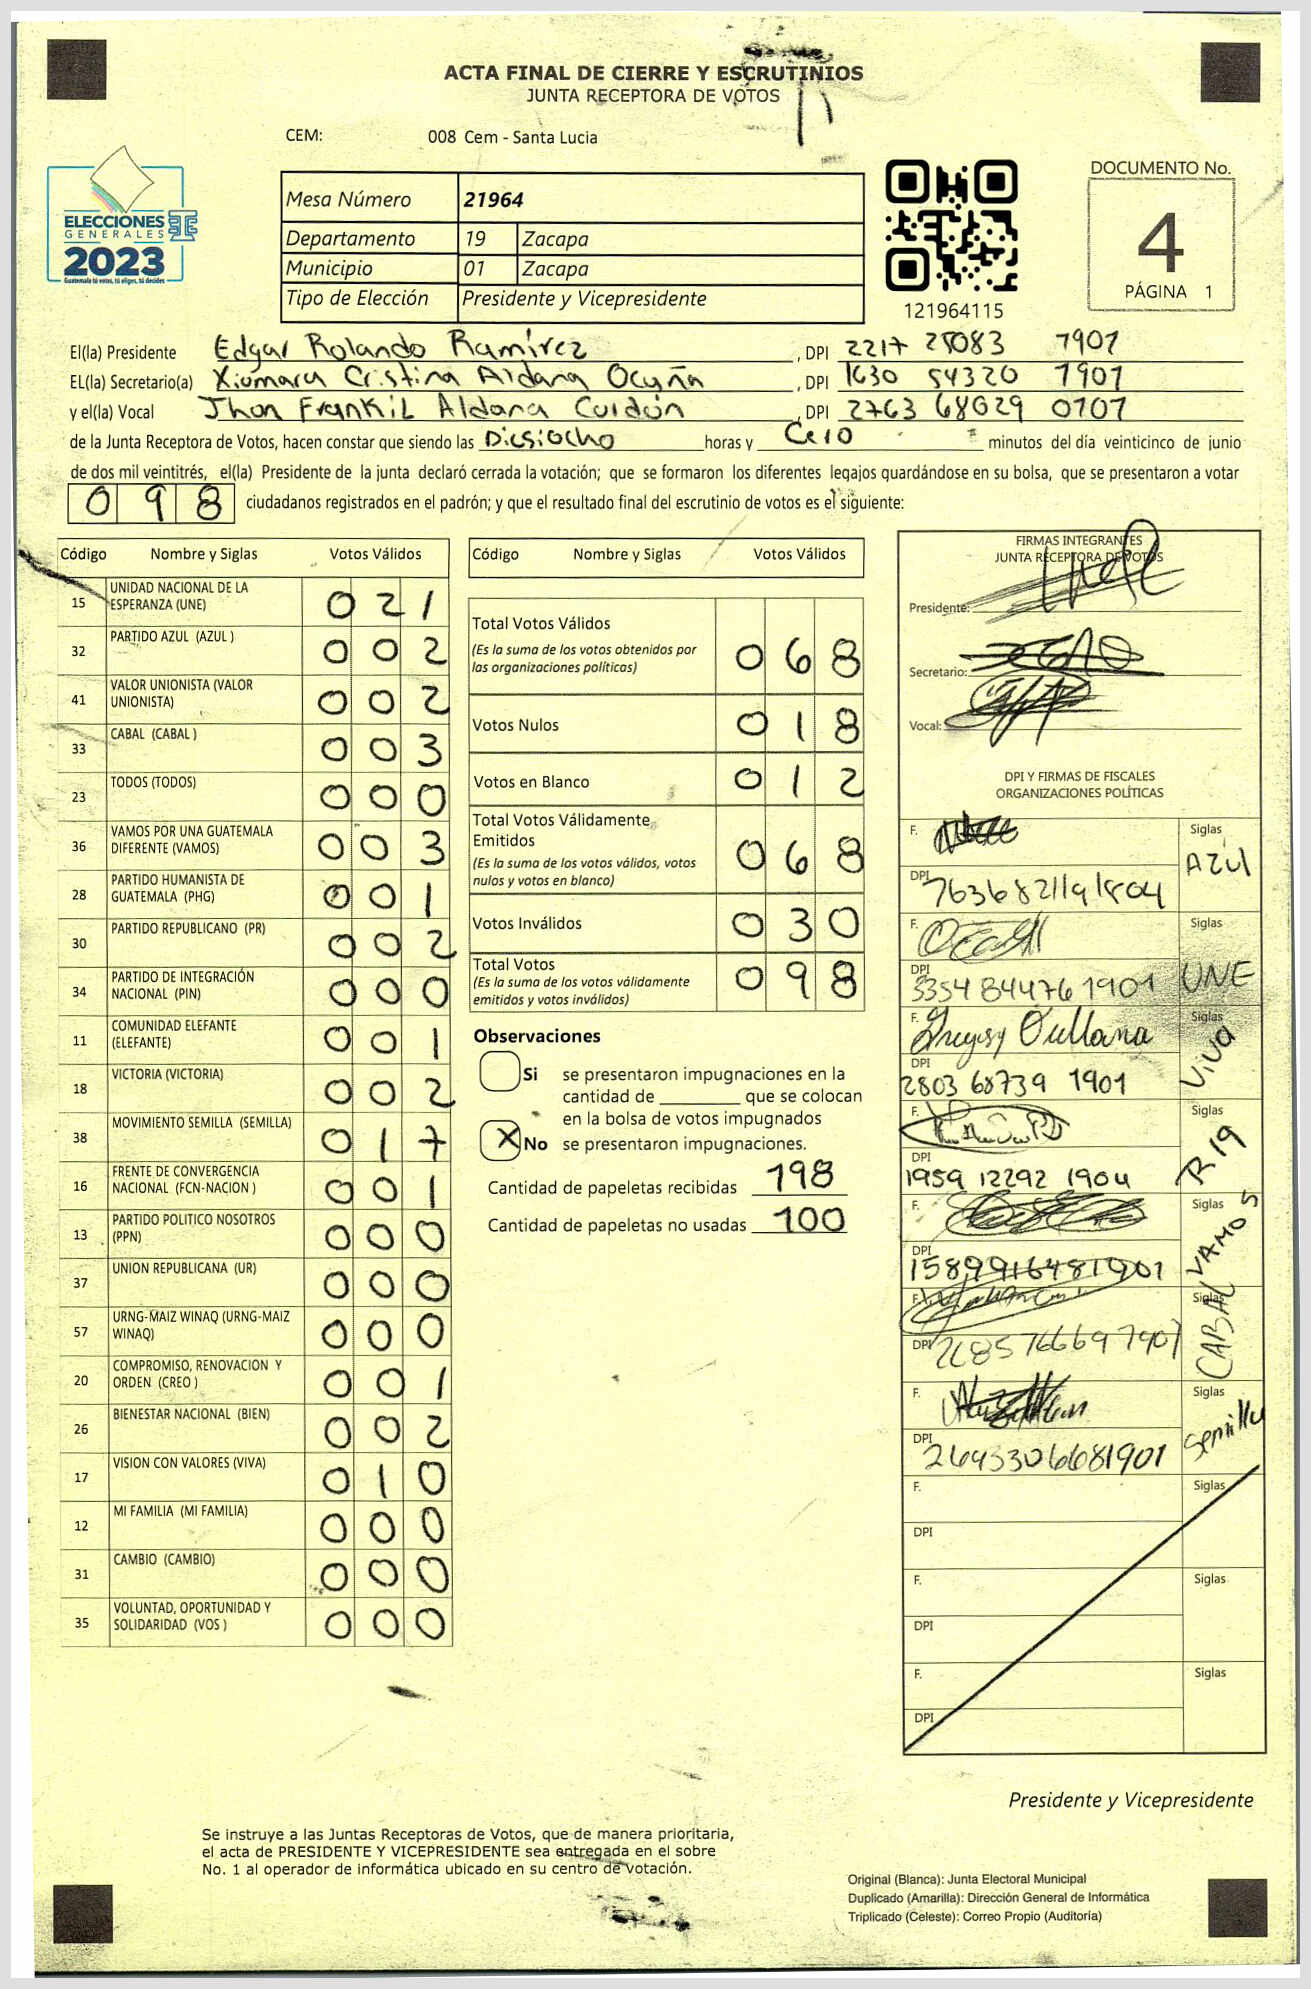 ACTA FINAL DE CIERRE Y ESCRUTINIOS
JUNTA RECEPTORA DE VOTOS
CEM: 008 Cem - Santa Lucia
ELECCIONES
GENERALES
2023
Guatemala tú votes, tú eliges, tú decides
Mesa Número 21964
Departamento 19 Zacapa
Municipio 01 Zacapa
Tipo de Elección Presidente y Vicepresidente
121964115
DOCUMENTO No.
4
PÁGINA 1
El(la) Presidente Edgar Rolando Ramírez, DPI 2217 25083 1901
EL(la) Secretario(a) Xiomara Cristina Aldana Ocuña, DPI 1630 54320 1901
y el(la) Vocal Jhon Frankil Aldana Cordón, DPI 2763 68029 0101
de la Junta Receptora de Votos, hacen constar que siendo las Diesiocho horas y Cero minutos del día veinticinco de junio
de dos mil veintitrés, el(la) Presidente de la junta declaró cerrada la votación; que se formaron los diferentes legajos guardándose en su bolsa, que se presentaron a votar
098 ciudadanos registrados en el padrón; y que el resultado final del escrutinio de votos es el siguiente:
Código Nombre y Siglas Votos Válidos
15 UNIDAD NACIONAL DE LA ESPERANZA (UNE) 021
32 PARTIDO AZUL (AZUL ) 002
41 VALOR UNIONISTA (VALOR UNIONISTA) 002
33 CABAL (CABAL ) 003
23 TODOS (TODOS) 000
36 VAMOS POR UNA GUATEMALA DIFERENTE (VAMOS) 003
28 PARTIDO HUMANISTA DE GUATEMALA (PHG) 001
30 PARTIDO REPUBLICANO (PR) 002
34 PARTIDO DE INTEGRACIÓN NACIONAL (PIN) 000
11 COMUNIDAD ELEFANTE (ELEFANTE) 001
18 VICTORIA (VICTORIA) 002
38 MOVIMIENTO SEMILLA (SEMILLA) 017
16 FRENTE DE CONVERGENCIA NACIONAL (FCN-NACION ) 001
13 PARTIDO POLITICO NOSOTROS (PPN) 000
37 UNION REPUBLICANA (UR) 000
57 URNG-MAIZ WINAQ (URNG-MAIZ WINAQ) 000
20 COMPROMISO, RENOVACION Y ORDEN (CREO ) 001
26 BIENESTAR NACIONAL (BIEN) 002
17 VISION CON VALORES (VIVA) 010
12 MI FAMILIA (MI FAMILIA) 000
31 CAMBIO (CAMBIO) 000
35 VOLUNTAD, OPORTUNIDAD Y SOLIDARIDAD (VOS ) 000
Código Nombre y Siglas Votos Válidos
Total Votos Válidos 068
(Es la suma de los votos obtenidos por
las organizaciones políticas)
Votos Nulos 018
Votos en Blanco 012
Total Votos Válidamente Emitidos 068
(Es la suma de los votos válidos, votos
nulos y votos en blanco)
Votos Inválidos 030
Total Votos 098
(Es la suma de los votos válidamente
emitidos y votos inválidos)
Observaciones
Si se presentaron impugnaciones en la
cantidad de ________ que se colocan
en la bolsa de votos impugnados
X No se presentaron impugnaciones.
Cantidad de papeletas recibidas 198
Cantidad de papeletas no usadas 100
FIRMAS INTEGRANTES
JUNTA RECEPTORA DE VOTOS
Presidente:
Secretario:
Vocal:
DPI Y FIRMAS DE FISCALES
ORGANIZACIONES POLÍTICAS
F. Siglas AZUL
DPI
F. Siglas UNE
DPI 3354 84476 1901
F. Siglas VIVA
DPI 2803 68739 1901
F. Siglas R19
DPI 1959 12292 1904
F. Siglas VAMOS
DPI 1589916481901
F. Siglas CABAL
DPI
F. Siglas Semilla
DPI 26493306681901
F. Siglas
DPI
F. Siglas
DPI
F. Siglas
DPI
Presidente y Vicepresidente
Se instruye a las Juntas Receptoras de Votos, que de manera prioritaria,
el acta de PRESIDENTE Y VICEPRESIDENTE sea entregada en el sobre
No. 1 al operador de informática ubicado en su centro de votación.
Original (Blanca): Junta Electoral Municipal
Duplicado (Amarilla): Dirección General de Informática
Triplicado (Celeste): Correo Propio (Auditoría)